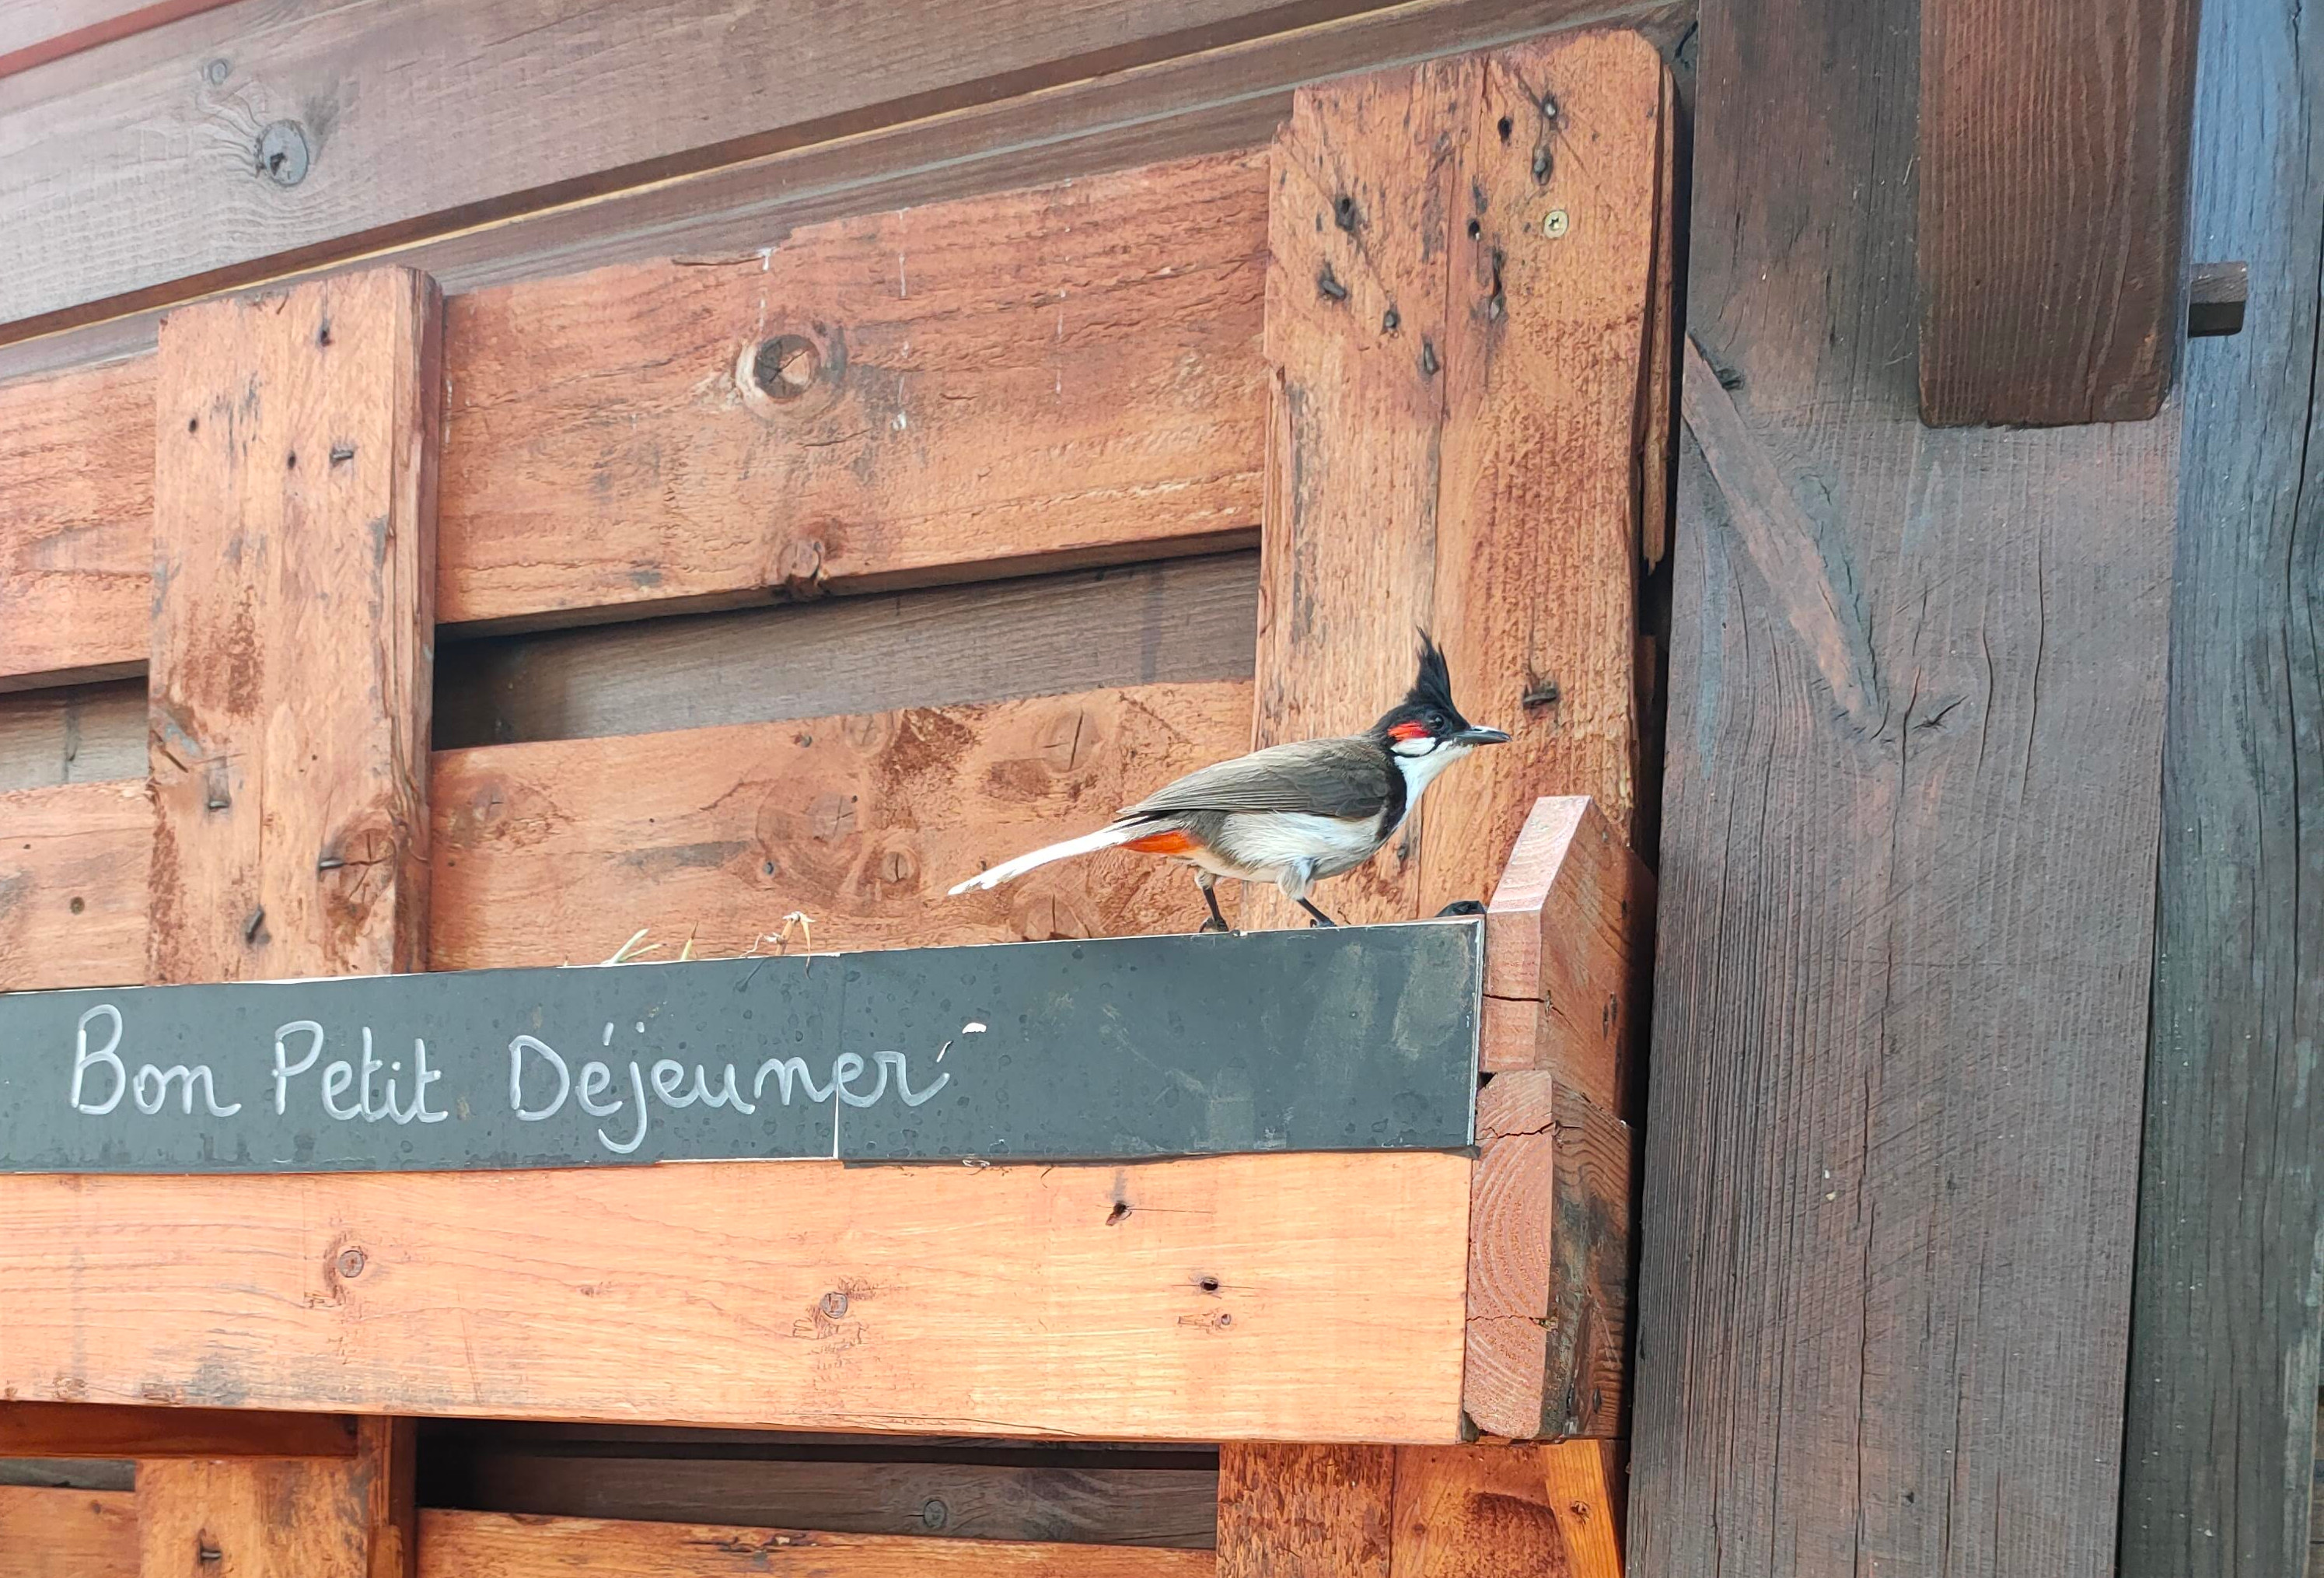 Bon Petit Déjeuner